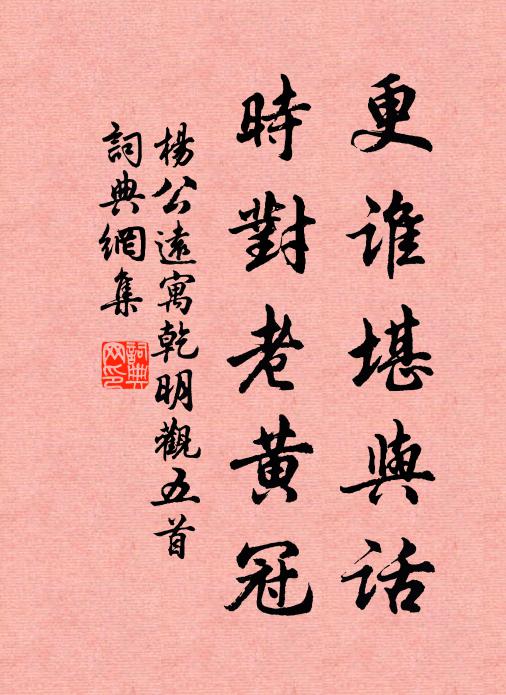 更誰堪與話
時對老黃冠
楊公遠寓乾明觀五首
詞典網集
詞典网印